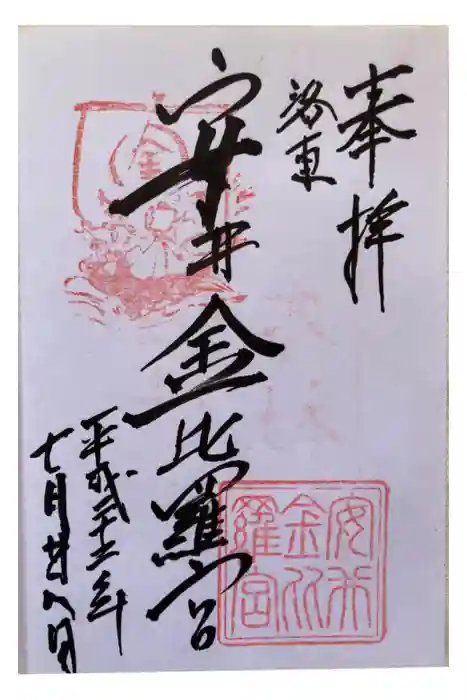 奉拝
洛東
安井金比羅宮
平成二十三年
七月廿八日
金
安井
金比
羅宮